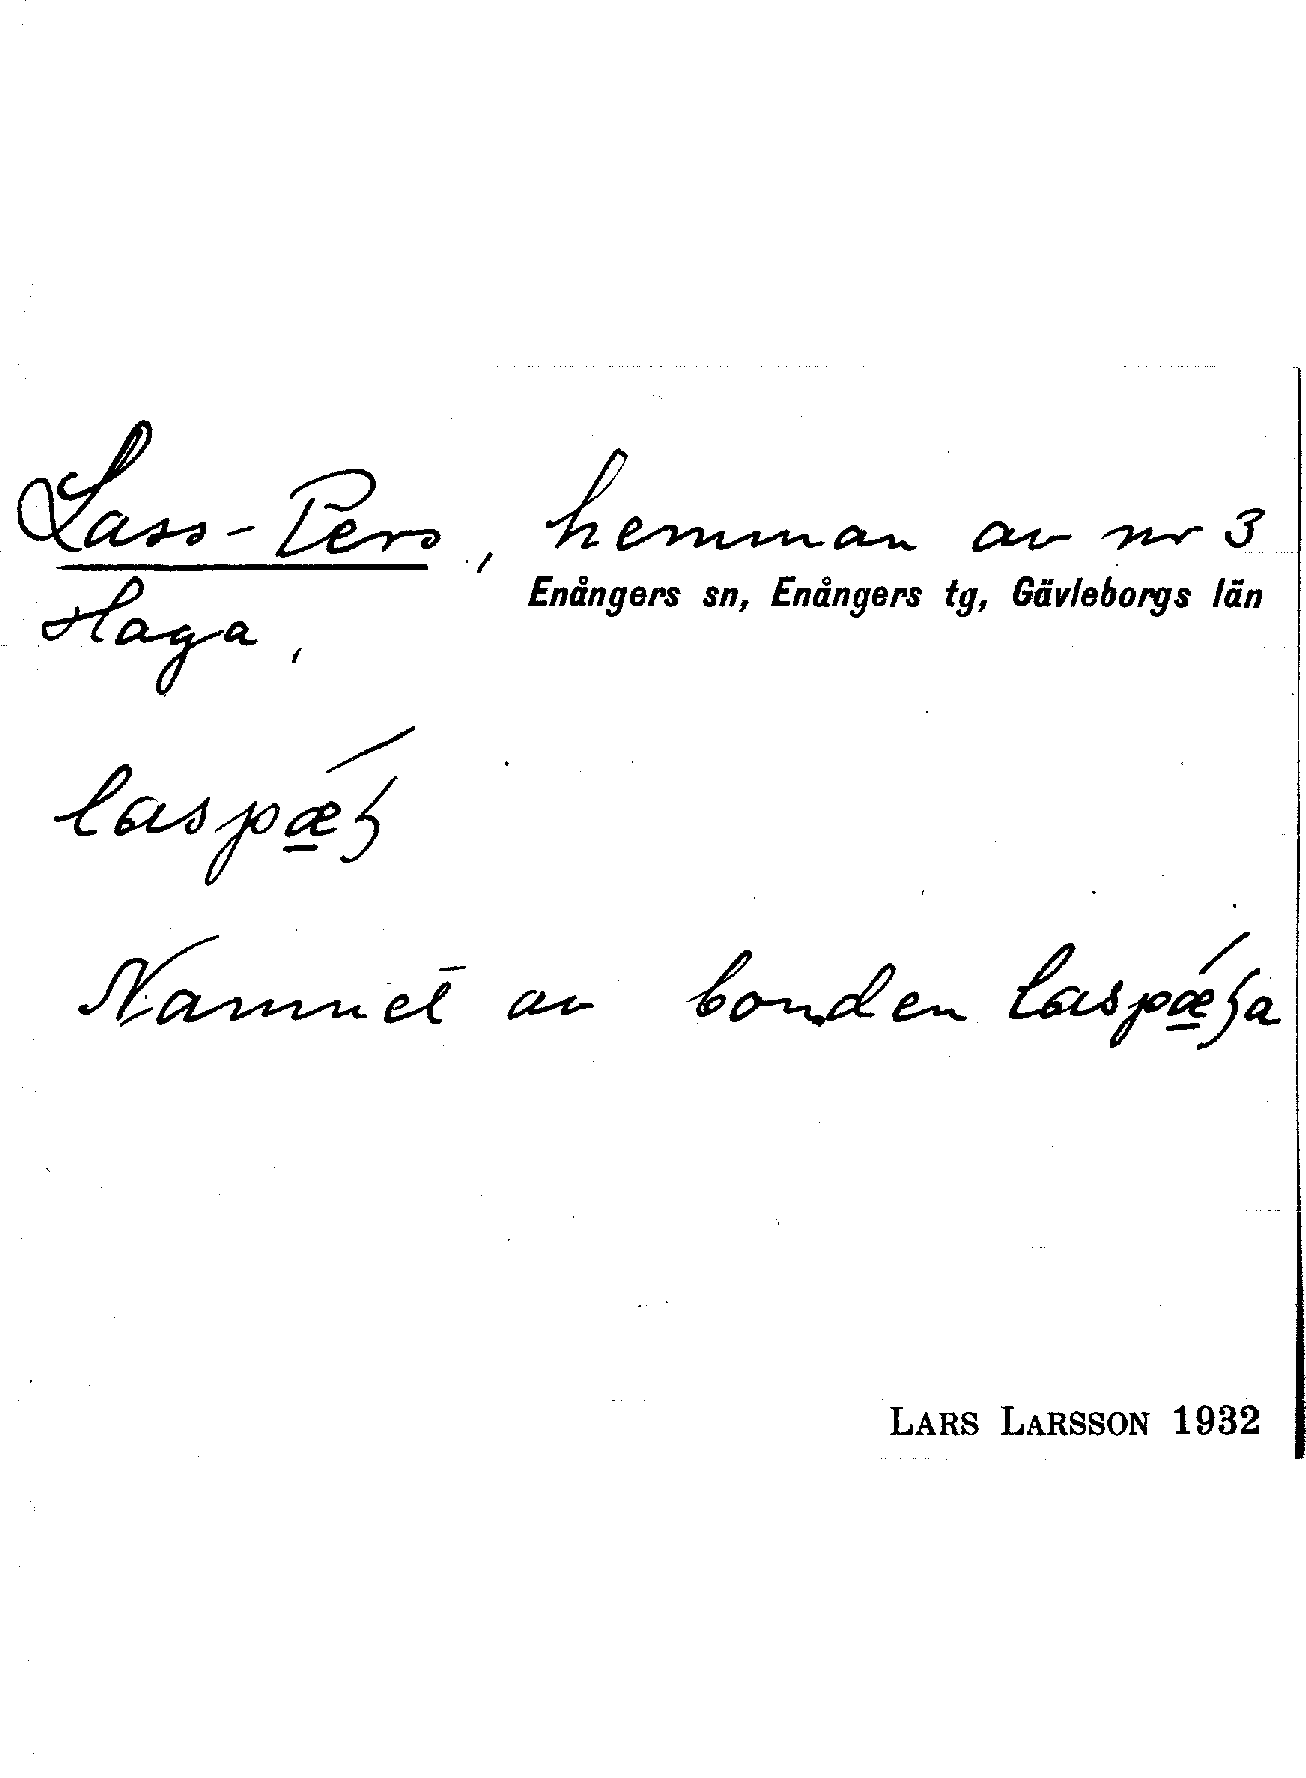 Lass-Pers, hemman av nr 3
Enångers sn, Enångers tg, Gävleborgs län
Haga,
Namnet av bonden
LARS LARSSON 1932